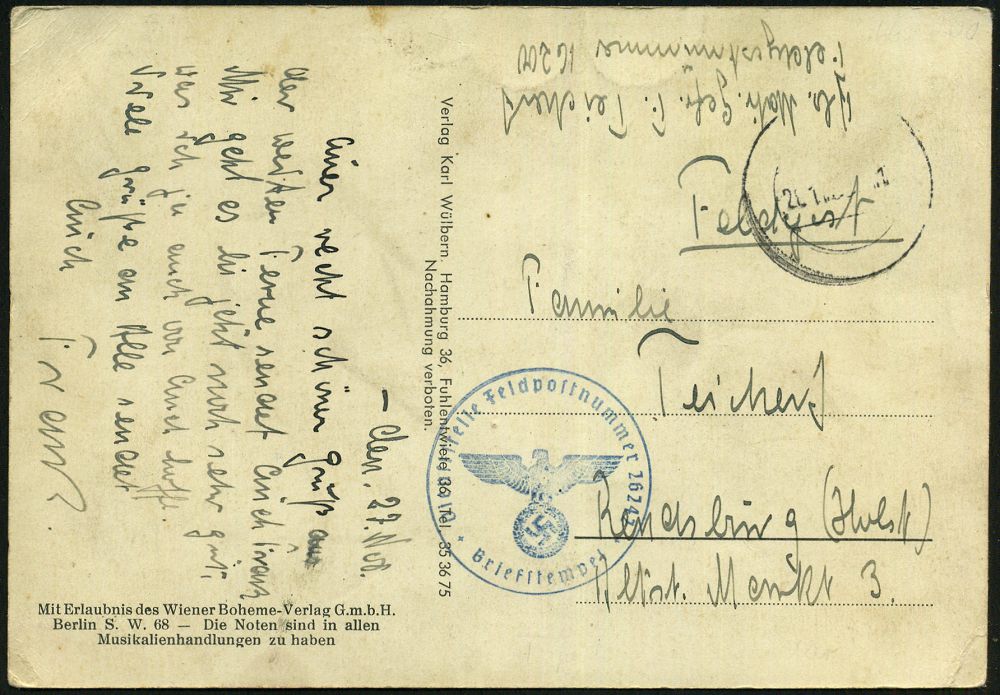 — den. 27. Nov.
Einen recht schönen Gruß aus
der weiten Ferne sendet Euch Franz
Mir geht es bis jetzt noch sehr gut,
was ich ja auch von Euch hoffe
Viele Grüße an Alle sendet
Euch
Franz
Mit Erlaubnis des Wiener Boheme-Verlag G.m.b.H.
Berlin S. W. 68 — Die Noten sind in allen
Musikalienhandlungen zu haben
Verlag Karl Wülbern, Hamburg 36, Fuhlentwiete 36, Tel. 35 36 75
Nachahmung verboten.
Gefr. F. Teichert
Feldpostnummer
Feldpost
Familie
Teichert
Rendsburg (Holst)
Altst. Markt 3.
Feldpostnummer
Briefstempel